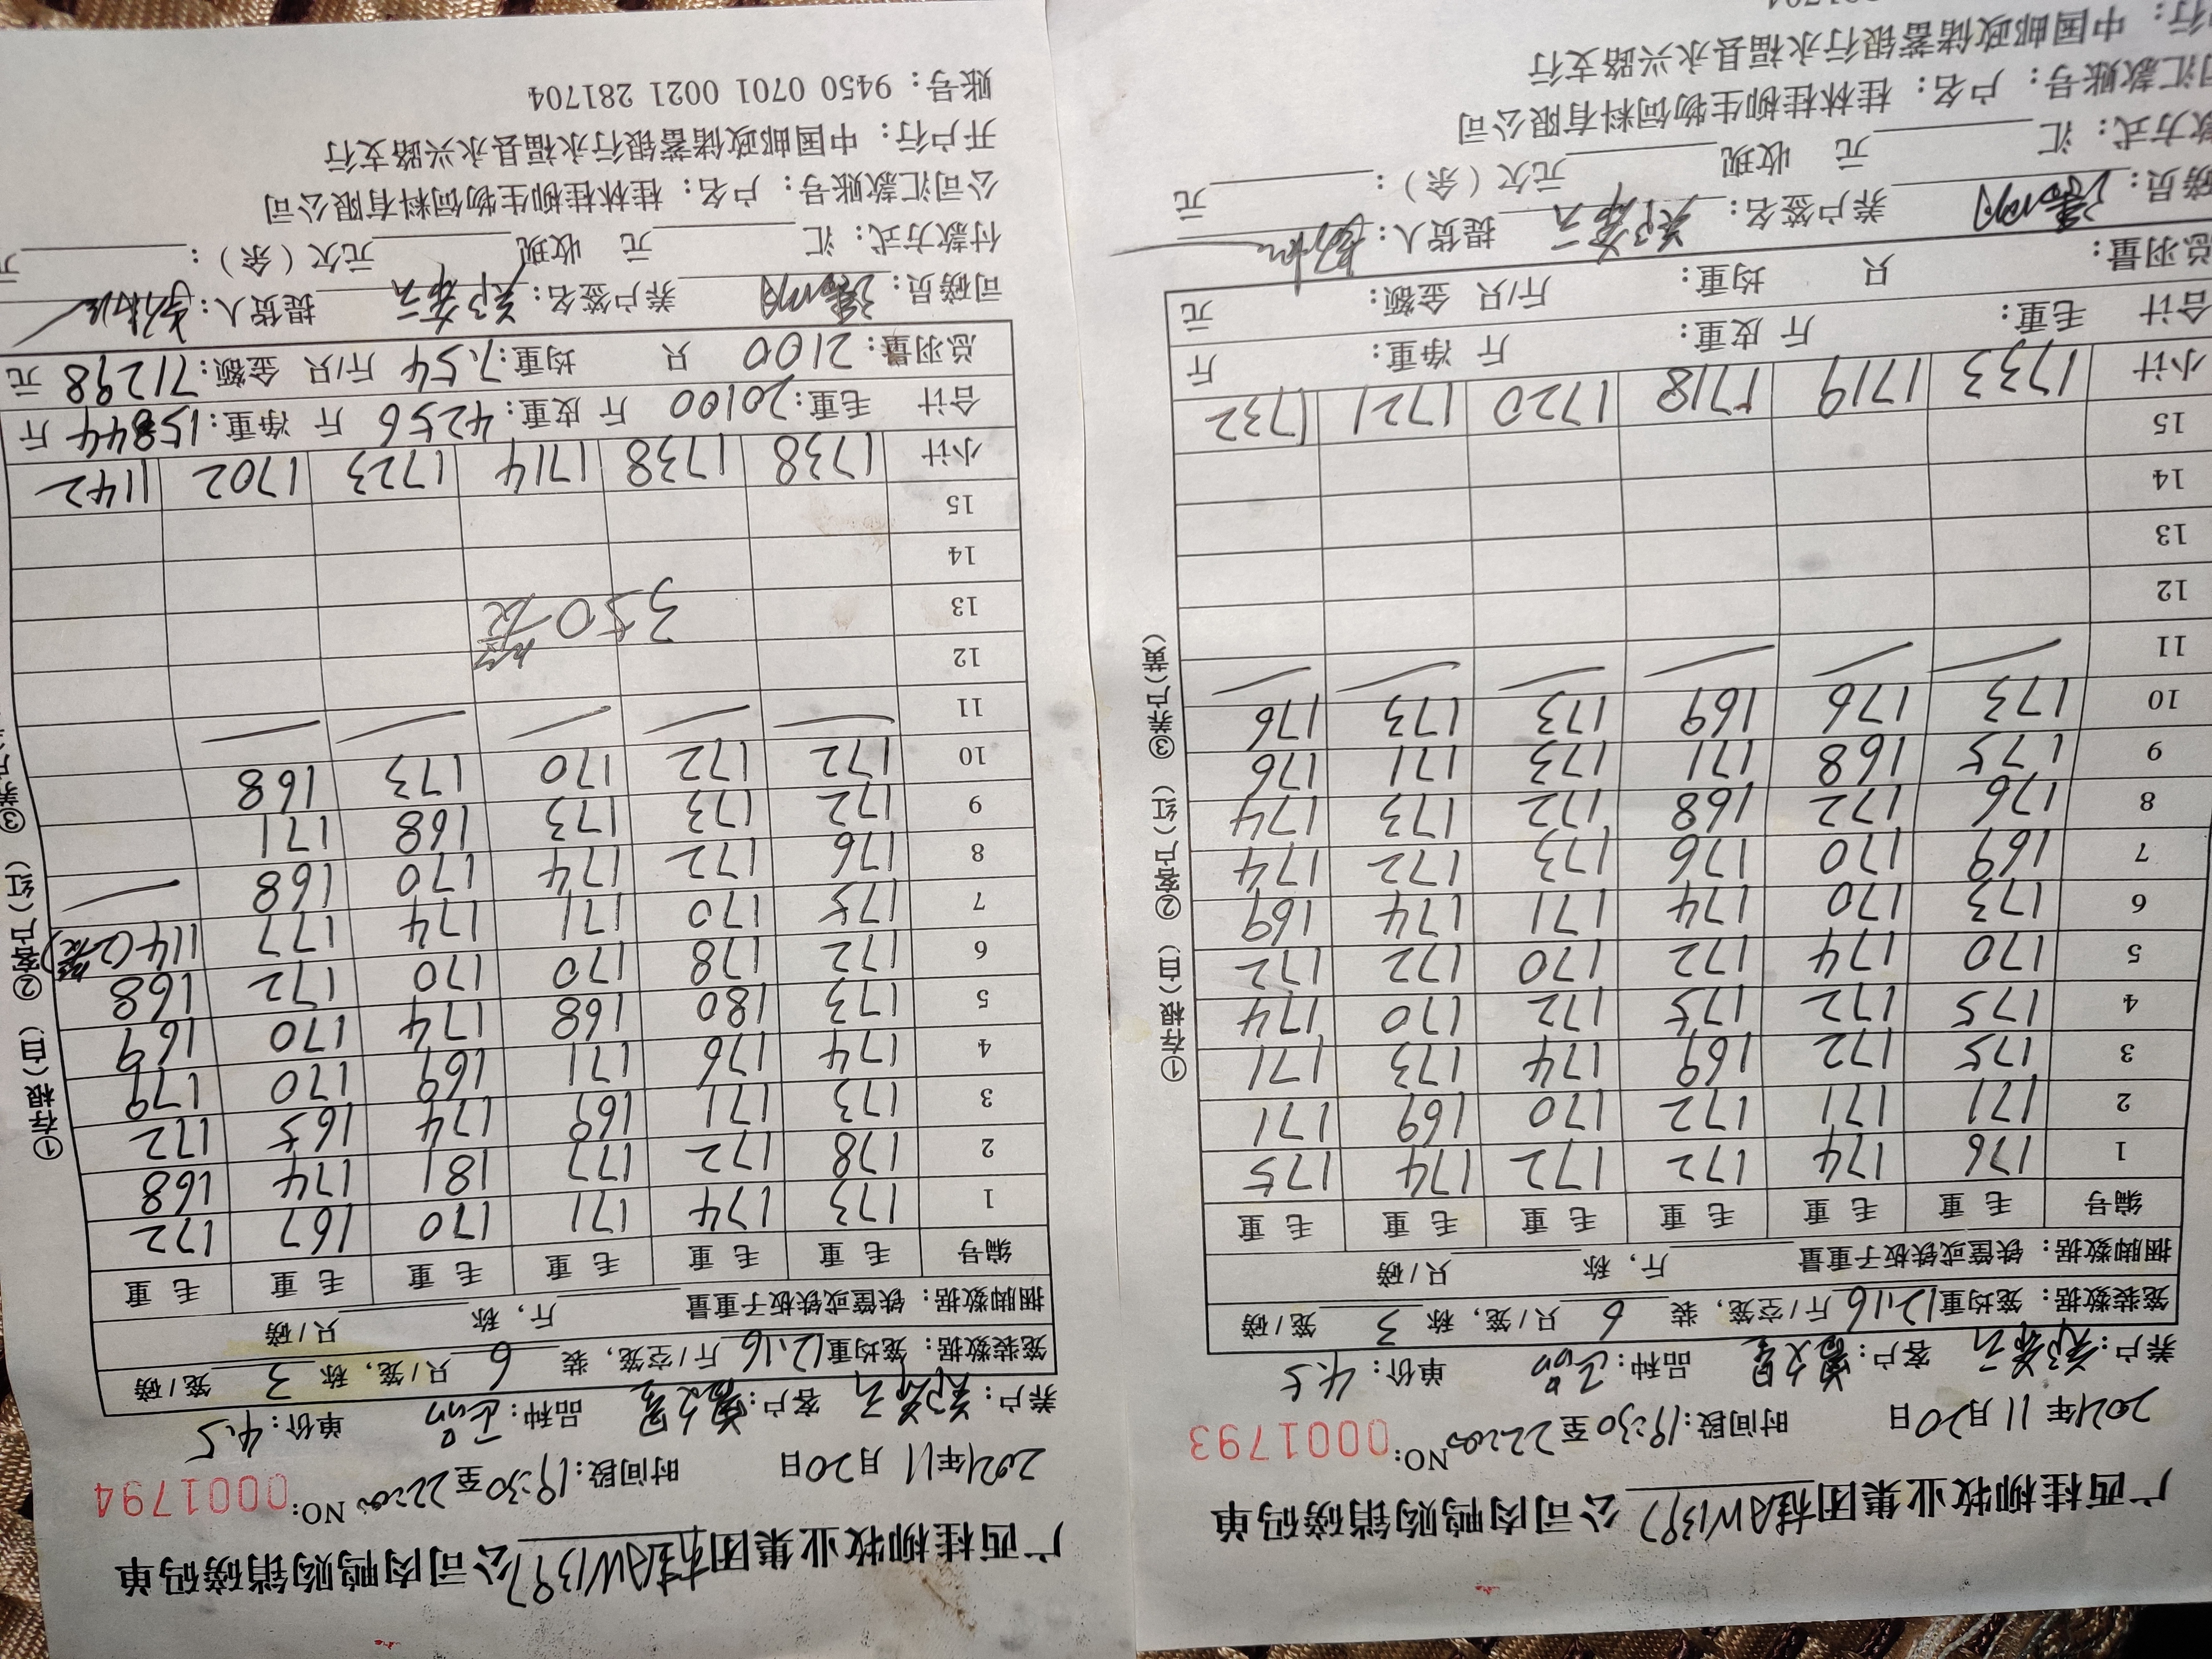 广西桂柳牧业集团桂AW1397公司肉鸭购销磅码单
2021年11月20日 时间段:19:30至22:00 NO:0001793
养户: 客户: 品种: 单价:4.5
笼装数据:笼均重12.16斤/空笼,装6只/笼,称3笼/磅
捆脚数据:铁筐或铁板子重量 斤,称 只/磅
编号 毛重 毛重 毛重 毛重 毛重 毛重
1 176 174 172 172 174 175
2 171 171 172 170 169 171
3 175 172 169 174 173 171
4 175 172 175 172 170 174
5 170 174 172 170 172 172
6 173 170 174 171 174 169
7 169 170 176 173 172 174
8 176 172 168 172 173 174
9 175 168 171 173 171 176
10 173 176 169 173 173 176
11
12
13
14
15
小计 1733 1719 1718 1720 1721 1732
合计 毛重: 斤 皮重: 斤 净重: 斤
总羽量: 只 均重: 斤/只 金额: 元
磅员: 养户签名: 提货人:
款方式:汇 元 收现 元欠(余): 元
司汇款账号:户名:桂林桂柳生物饲料有限公司
行:中国邮政储蓄银行永福县永兴路支行
①存根(白) ②客户(红) ③养户(黄)
广西桂柳牧业集团桂AW1397公司肉鸭购销磅码单
2021年11月20日 时间段:19:30至22:00 NO:0001794
养户: 客户: 品种: 单价:4.5
笼装数据:笼均重12.16斤/空笼,装6只/笼,称3笼/磅
捆脚数据:铁筐或铁板子重量 斤,称 只/磅
编号 毛重 毛重 毛重 毛重 毛重 毛重
1 173 174 171 170 167 172
2 178 172 177 181 174 168
3 173 171 169 174 165 172
4 174 176 171 169 170 179
5 173 180 168 174 170 169
6 172 178 170 170 172 168
7 175 170 171 174 177 114(2笼)
8 176 172 174 170 168
9 172 173 173 168 171
10 172 172 170 173 168
11
12
13 350笼
14
15
小计 1738 1738 1714 1723 1702 1142
合计 毛重:20100斤 皮重:4256斤 净重:15844斤
总羽量:2100只 均重:7.54斤/只 金额:71298元
司磅员: 养户签名: 提货人:
付款方式:汇 元 收现 元欠(余): 元
公司汇款账号:户名:桂林桂柳生物饲料有限公司
开户行:中国邮政储蓄银行永福县永兴路支行
账号:9450 0701 0021 281704
①存根(白) ②客户(红) ③养户